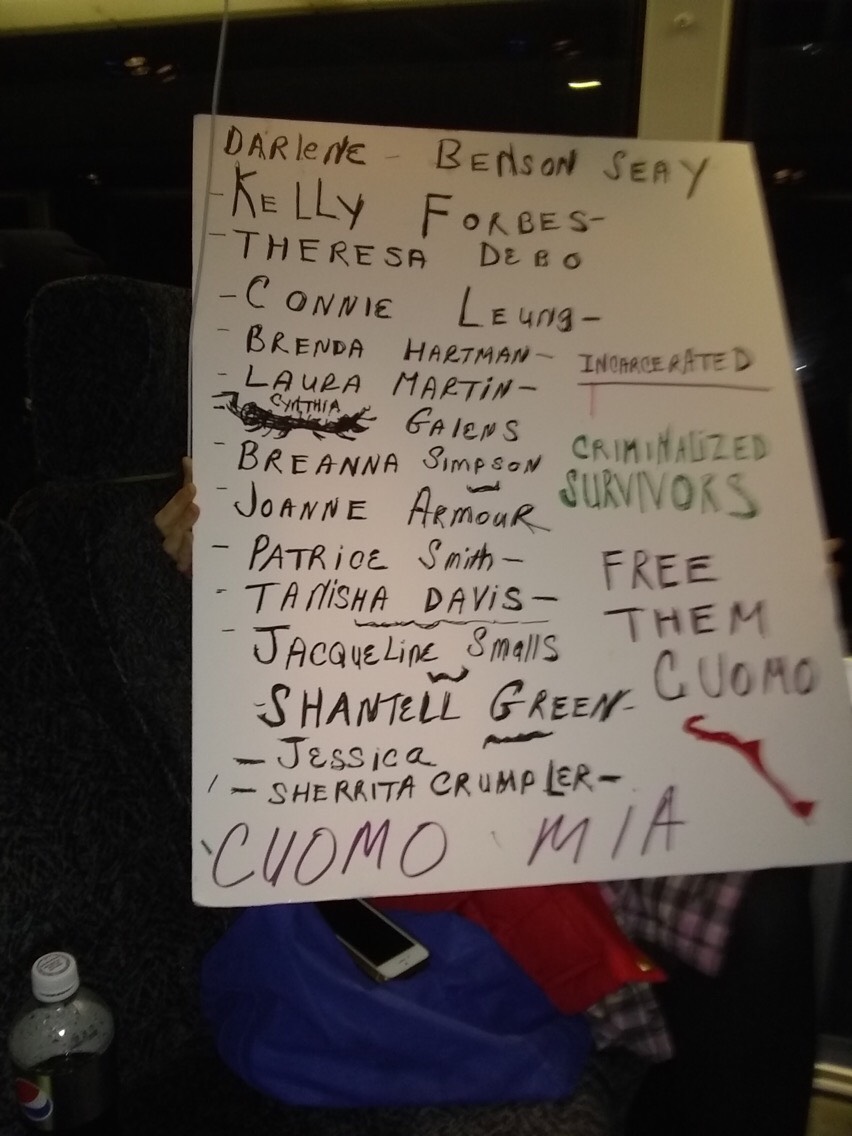 DARLENE - BENSON SEAY
- KELLY FORBES-
- THERESA DEBO
- CONNIE LEUNG-
- BRENDA HARTMAN-
- LAURA MARTIN-
- CYNTHIA GALENS
- BREANNA SIMPSON
- JOANNE ARMOUR
- PATRICE Smith-
- TANISHA DAVIS-
- JACQUELINE Smalls
- SHANTELL GREEN-
- JESSICA
- SHERRITA CRUMPLER-
INCARCERATED
CRIMINALIZED
SURVIVORS
FREE
THEM
CUOMO
CUOMO MIA